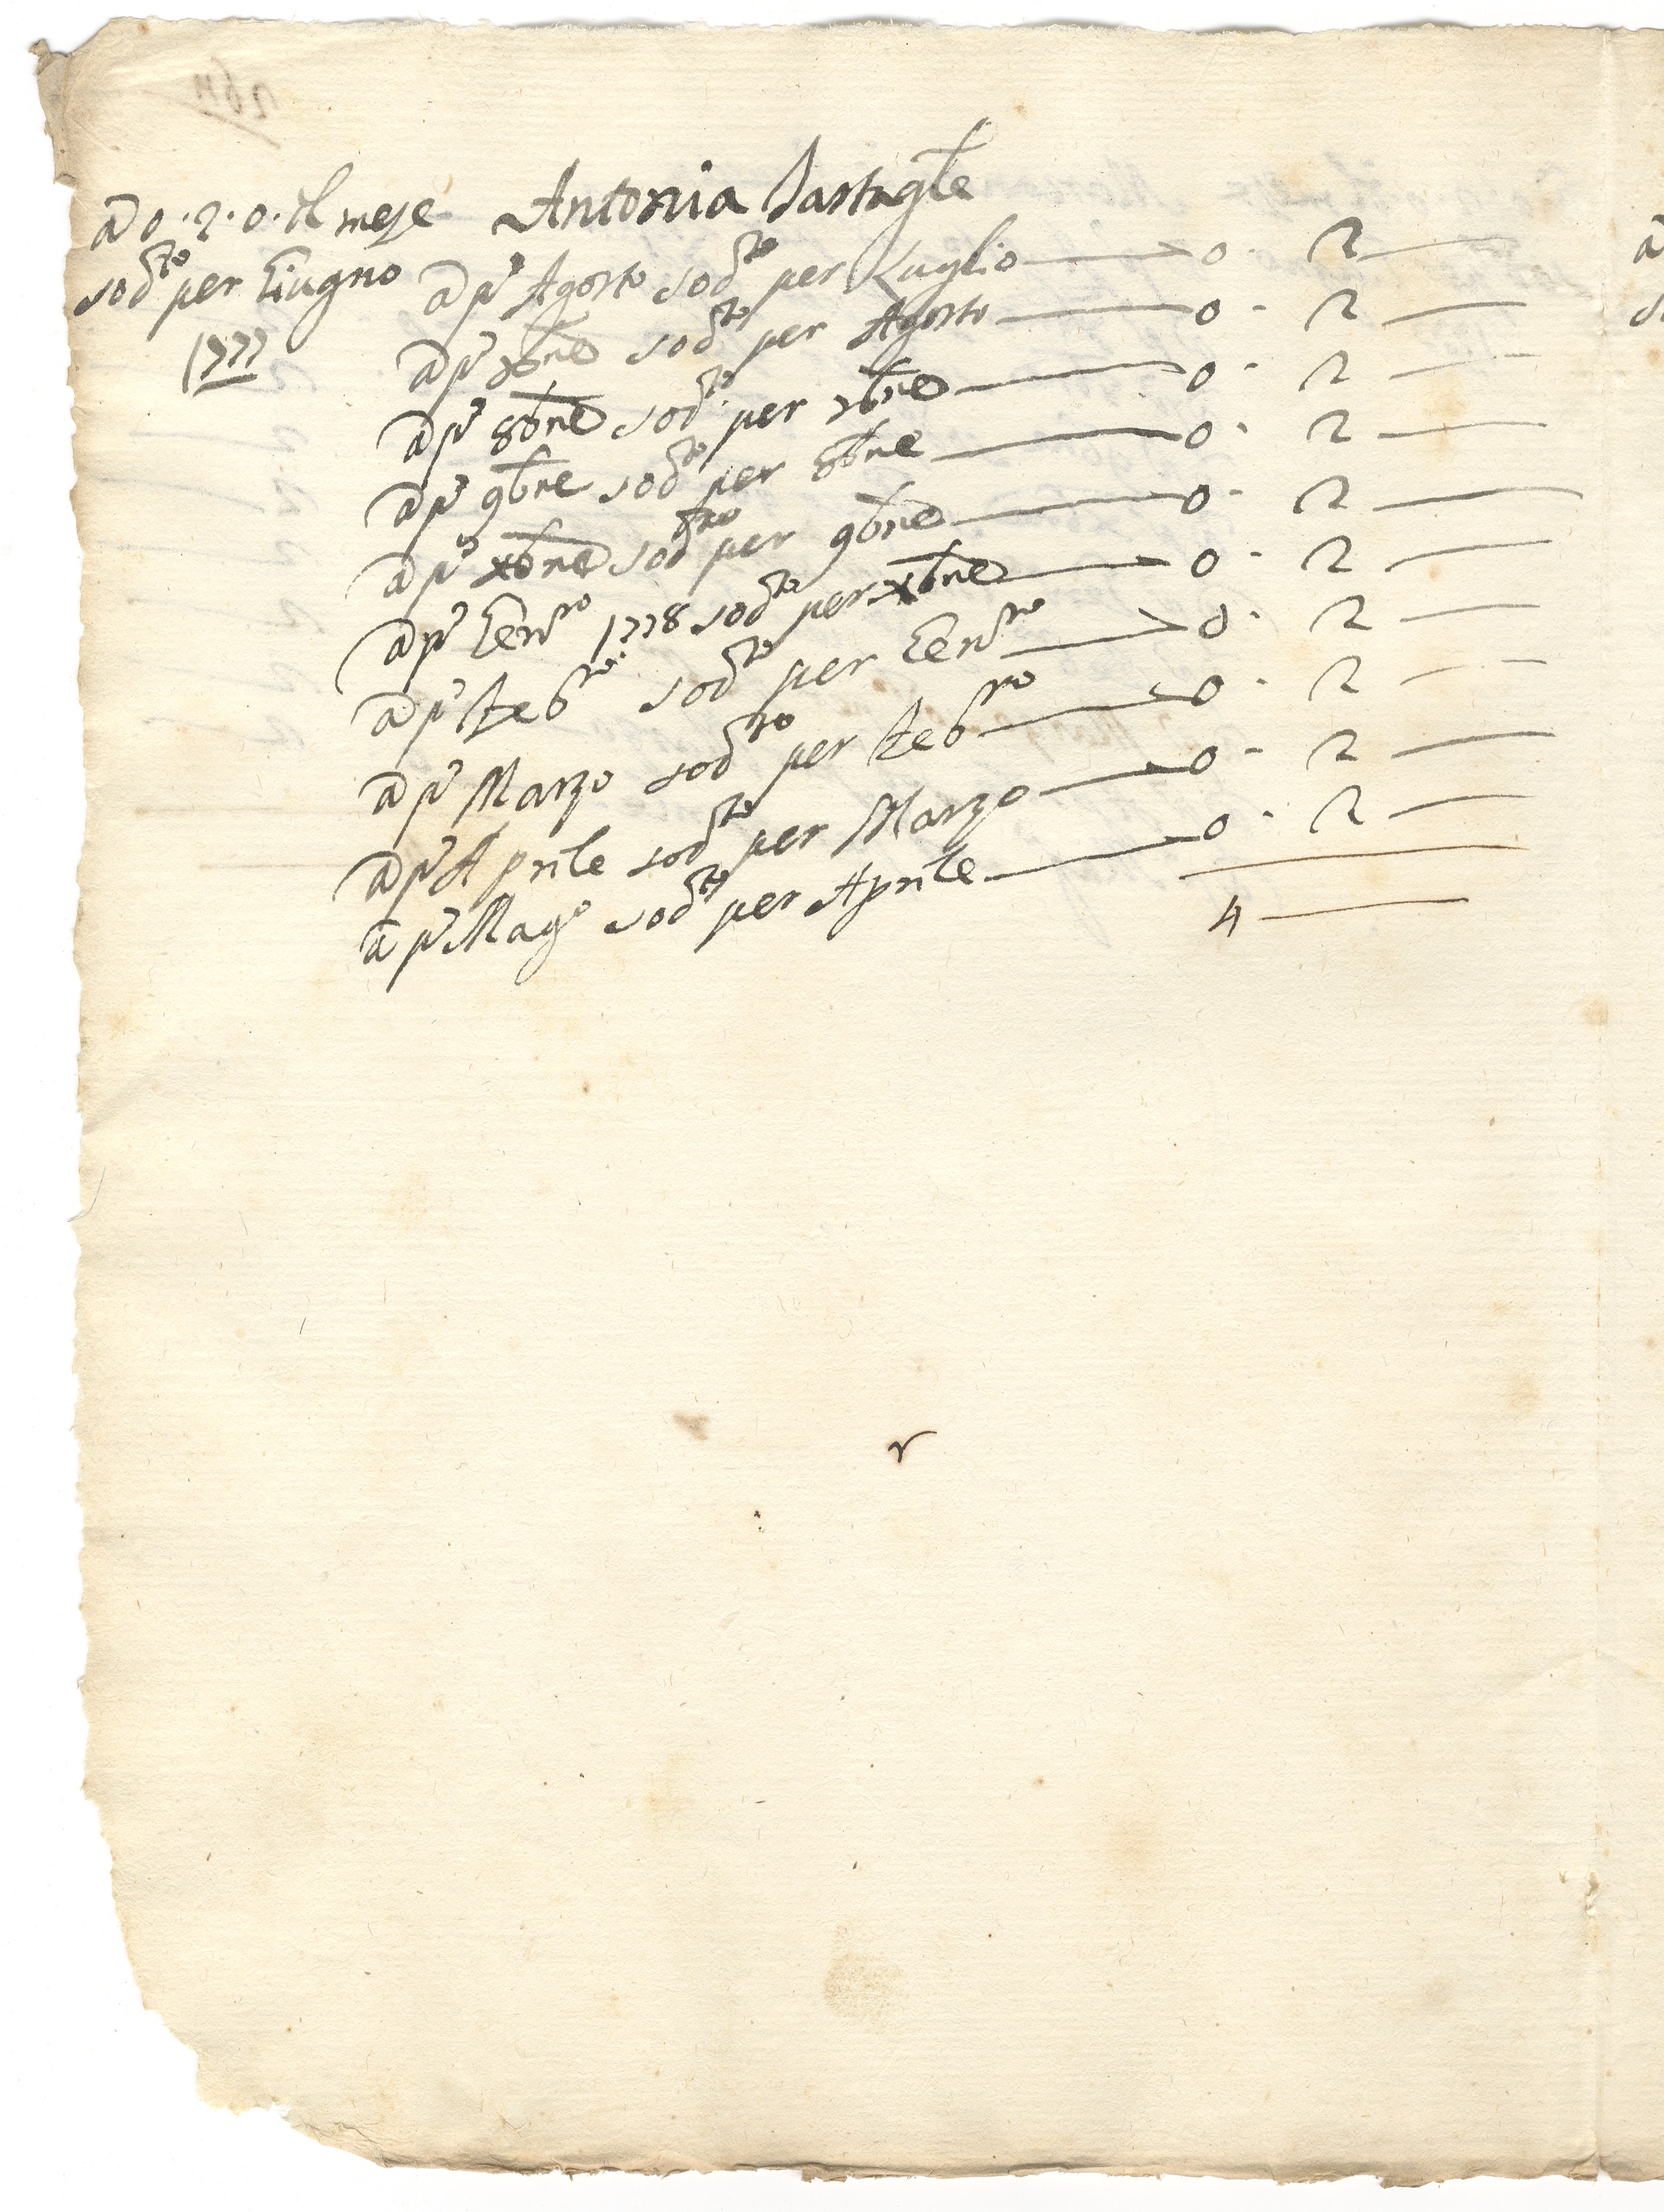 à 0.2.0. il mese Antonia
sodto per Giugno
1777
à pº Agosto sodto per Luglio 0. 2
à pº 7bre sodto per Agosto 0. 2
à pº 8bre sodto per 7bre 0. 2
à pº 9bre sodto per 8bre 0. 2
à pº xbre sodto per 9bre 0. 2
à pº Genro 1778 sodto per xbre 0. 2
à pº Febro sodto per Genro 0. 2
à pº Marzo sodto per Febro 0. 2
à pº Aprile sodto per Marzo 0. 2
à pº Mago sodto per Aprile 0. 2
4